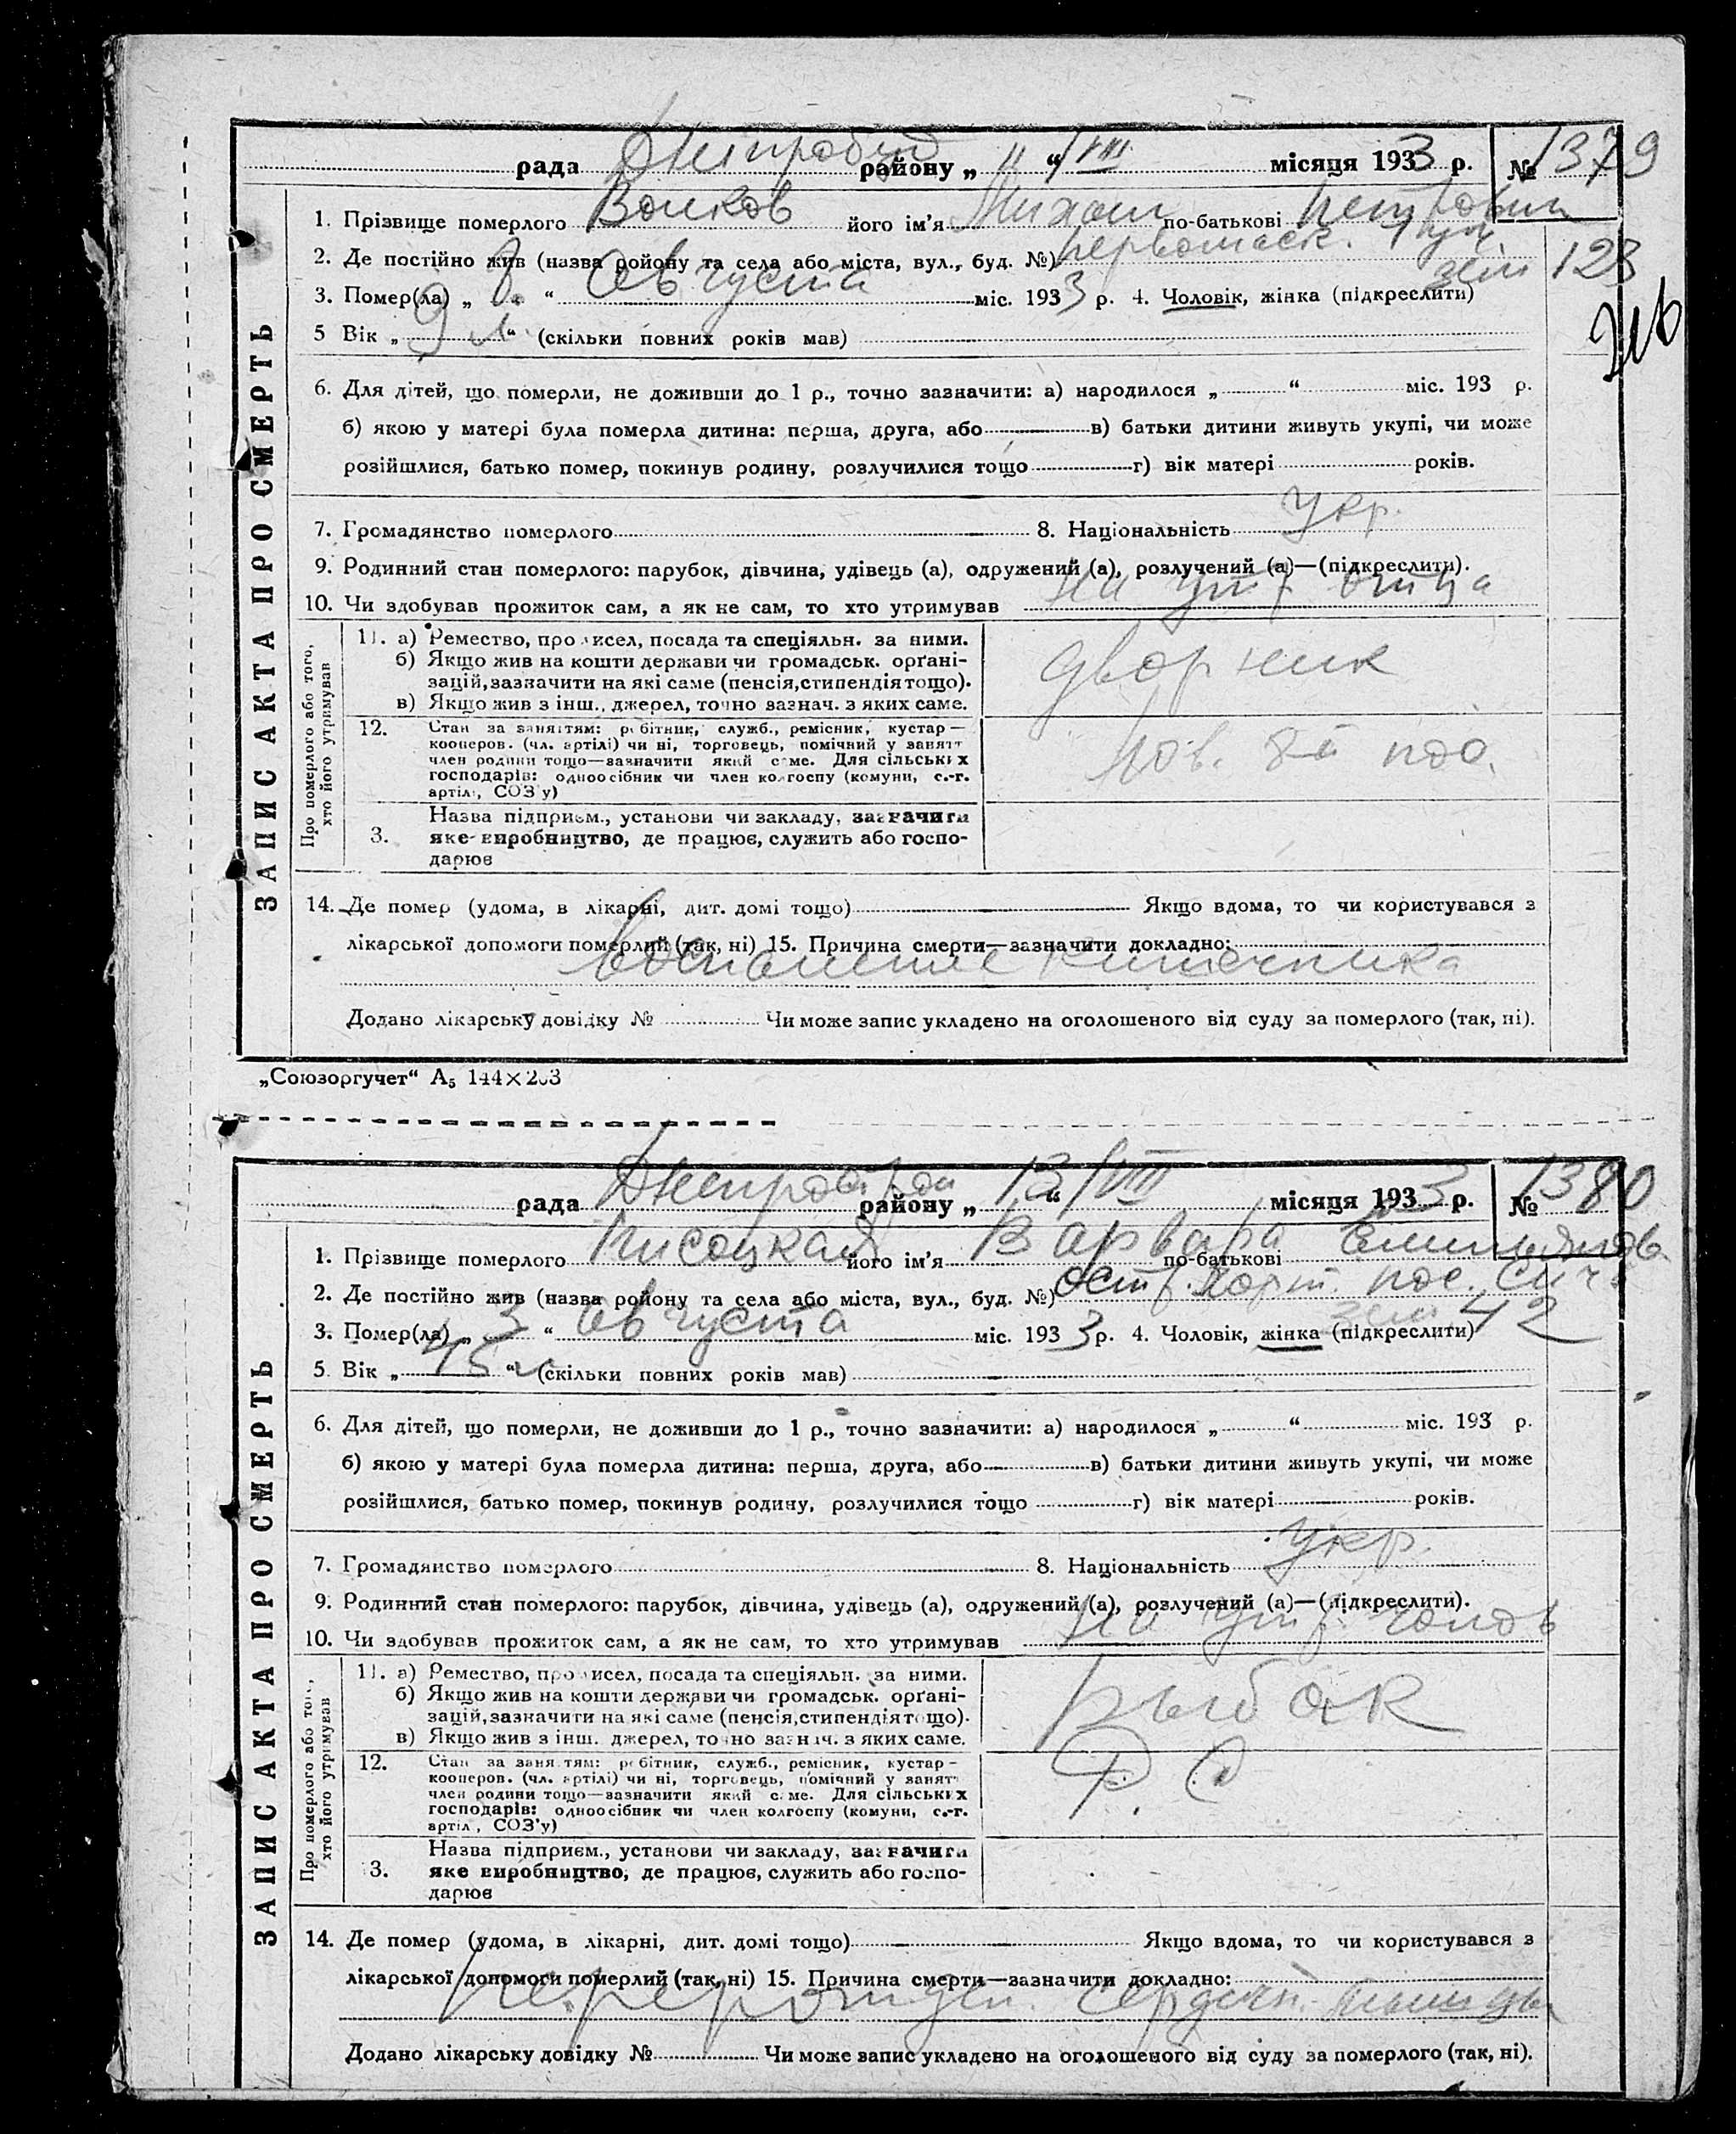 рада Дніпробуд району „ 11 “ VIII місяця 1933 р. № 1379
1. Прізвище померлого Волков його ім’я Михаил по-батькові Петрович
2. Де постійно жив (назва району та села або міста, вул., буд. №) первомайск. 1 уч.
зем 123
3. Помер(ла) „ 8 “ Августа міс. 1933 р. 4. Чоловік, жінка (підкреслити)
5 Вік „ 9 л. “ (скільки повних років мав)
6. Для дітей, що померли, не доживши до 1 р., точно зазначити: а) народилося „ “ міс. 193 р.
б) якою у матері була померла дитина: перша, друга, або в) батьки дитини живуть укупі, чи може
розійшлися, батько помер, покинув родину, розлучилися тощо г) вік матері років.
7. Громадянство померлого 8. Національність Укр.
9. Родинний стан померлого: парубок, дівчина, удівець (а), одружений (а), розлучений (а)—(підкреслити).
10. Чи здобував прожиток сам, а як не сам, то хто утримував на утр отца
ЗАПИС АКТА ПРО СМЕРТЬ
Про померлого або того, хто його утримував
11. а) Ремество, промисел, посада та спеціяльн. за ними.
б) Якщо жив на кошти держави чи громадськ. орґані-
зацій, зазначити на які саме (пенсія, стипендія тощо).
в) Якщо жив з інш. джерел, точно зазнач. з яких саме.
дворник
12. Стан за заняттям: робітник, служб., ремісник, кустар—
кооперов. (чл. артілі) чи ні, торговець, помічний у занятт
член родини тощо—зазначити який саме. Для сільських
господарів: одноосібник чи член колгоспу (комуни, с.-г.
артіл., СОЗ’у)
3. Назва підприєм., установи чи закладу, зазначити
яке виробництво, де працює, служить або госпо-
дарює
14. Де помер (удома, в лікарні, дит. домі тощо) Якщо вдома, то чи користувався з
лікарської допомоги померлий (так, ні) 15. Причина смерти—зазначити докладно:
Воспаление кишечника
Додано лікарську довідку № Чи може запис укладено на оголошеного від суду за померлого (так, ні).
„Союзоргучет“ А₅ 144×203
рада Днепрострой району „ 13 “ VIII місяця 1933 р. № 1380
1. Прізвище померлого Писоцкая його ім’я Варвара по-батькові
2. Де постійно жив (назва району та села або міста, вул., буд. №) Остр. Хорт. пос. Сич
зем 42
3. Помер(ла) „ 3 “ Августа міс. 1933 р. 4. Чоловік, жінка (підкреслити)
5. Вік „ 45 л “ (скільки повних років мав)
6. Для дітей, що померли, не доживши до 1 р., точно зазначити: а) народилося „ “ міс. 193 р.
б) якою у матері була померла дитина: перша, друга, або в) батьки дитини живуть укупі, чи може
розійшлися, батько помер, покинув родину, розлучилися тощо г) вік матері років.
7. Громадянство померлого 8. Національність Укр.
9. Родинний стан померлого: парубок, дівчина, удівець (а), одружений (а), розлучений (а)—(підкреслити).
10. Чи здобував прожиток сам, а як не сам, то хто утримував на утр. чолов
ЗАПИС АКТА ПРО СМЕРТЬ
Про померлого або того, хто його утримував
11. а) Ремество, промисел, посада та спеціяльн. за ними.
б) Якщо жив на кошти держави чи громадськ. орґані-
зацій, зазначити на які саме (пенсія, стипендія тощо).
в) Якщо жив з інш. джерел, точно зазнач. з яких саме.
рыбак
12. Стан за заняттям: робітник, служб., ремісник, кустар-
кооперов. (чл. артілі) чи ні, торговець, помічний у занятт
член родини тощо—зазначити який саме. Для сільських
господарів: одноосібник чи член колгоспу (комуни, с.-г.
артіл., СОЗ’у)
Р. С
3. Назва підприєм., установи чи закладу, зазначити
яке виробництво, де працює, служить або госпо-
дарює
14. Де помер (удома, в лікарні, дит. домі тощо) Якщо вдома, то чи користувався з
лікарської допомоги померлий (так, ні) 15. Причина смерти—зазначити докладно:
перерожден. сердечн. мышцы
Додано лікарську довідку № Чи може запис укладено на оголошеного від суду за померлого (так, ні).